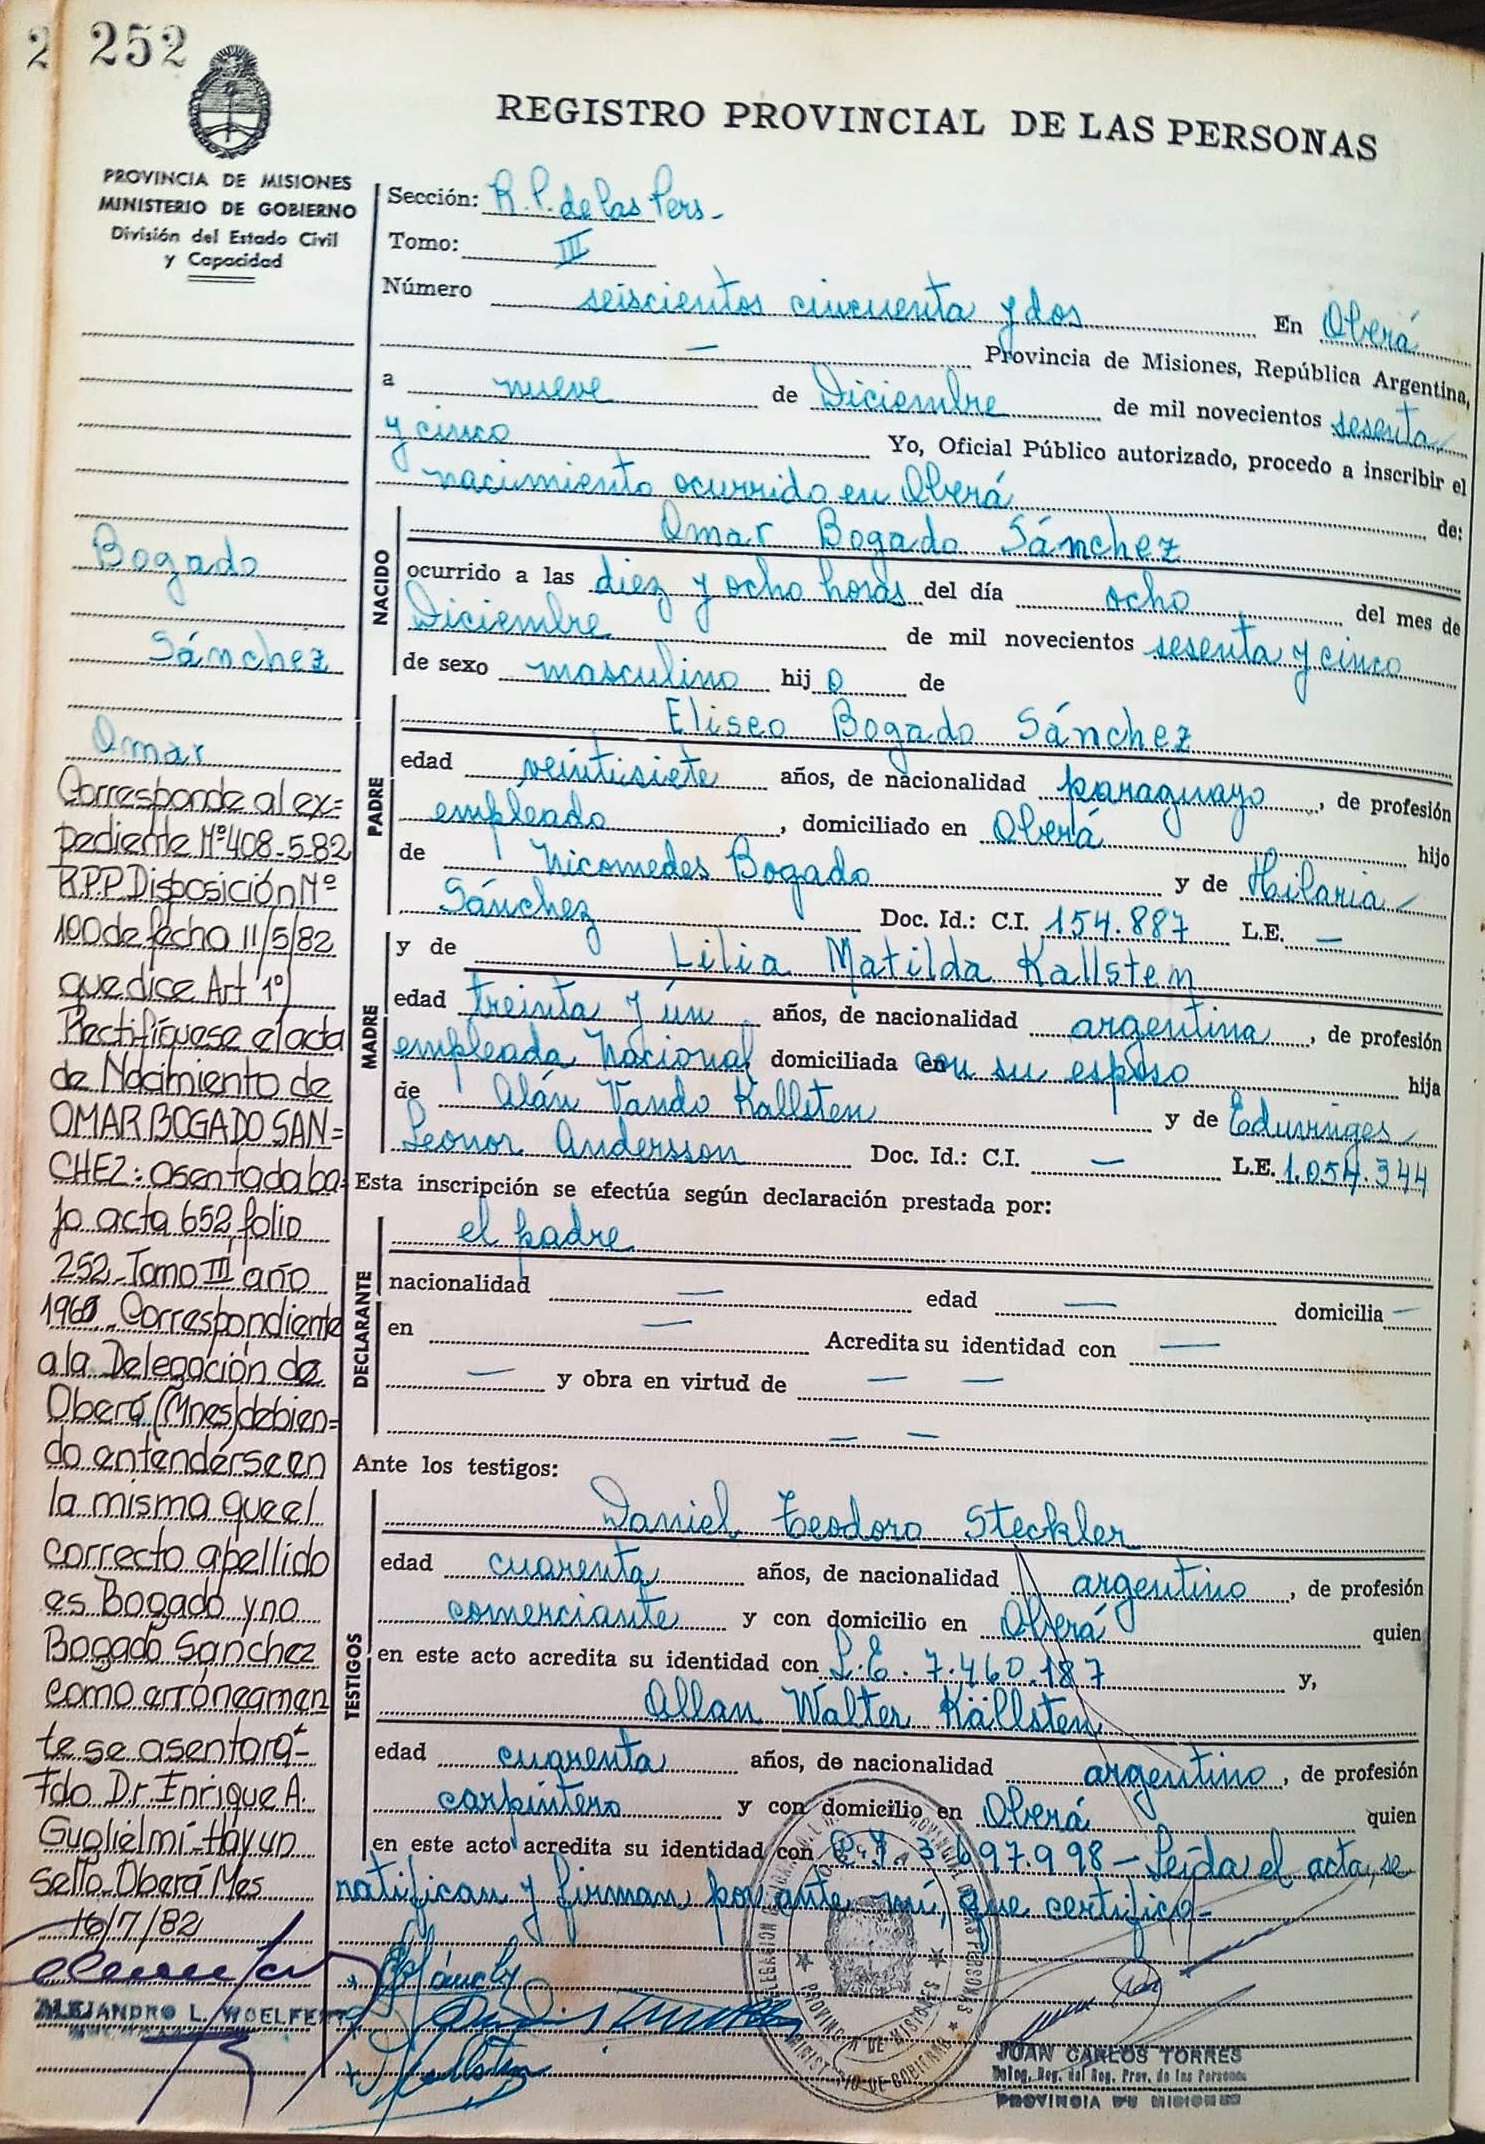 2 252
REGISTRO PROVINCIAL DE LAS PERSONAS
PROVINCIA DE MISIONES
MINISTERIO DE GOBIERNO
División del Estado Civil
y Capacidad
Bogado
Sánchez
Omar
Corresponde al ex=
pediente Nº 408-5-82
R.P.P. Disposición Nº
100 de fecha 11/5/82
que dice Art 1º)
Rectifíquese el acta
de Nacimiento de
OMAR BOGADO SAN=
CHEZ: asentada ba=
jo acta 652 folio
252 Tomo III año
1965 Correspondiente
a la Delegación de
Oberá (Mnes) debien=
do entendérse en
la misma que el
correcto apellido
es Bogado y no
Bogado Sanchez
como erróneamen
te se asentará-
Fdo Dr. Enrique A.
Guglielmi-Hay un
sello Oberá Mes
16/7/82
ALEJANDRO L. WOELFERT
Sección: R. P. de las Pers-
Tomo: III
Número seiscientos cincuenta y dos En Oberá
— Provincia de Misiones, República Argentina,
a nueve de Diciembre de mil novecientos sesenta
y cinco Yo, Oficial Público autorizado, procedo a inscribir el
nacimiento ocurrido en Oberá de:
NACIDO
Omar Bogado Sánchez
ocurrido a las diez y ocho horas del día ocho del mes de
Diciembre de mil novecientos sesenta y cinco
de sexo masculino hij o de
PADRE
Eliseo Bogado Sánchez
edad veintisiete años, de nacionalidad paraguayo, de profesión
empleado, domiciliado en Oberá hijo
de Nicomedes Bogado y de Hilaria
Sánchez Doc. Id.: C.I. 154.887 L.E. —
MADRE
y de Lilia Matilda Kallsten
edad treinta y ún años, de nacionalidad argentina, de profesión
empleada Nacional domiciliada en con su esposo hija
de Alán Vando Kallsten y de Eduvinges
Leonor Andersson Doc. Id.: C.I. — L.E. 1.054.344
Esta inscripción se efectúa según declaración prestada por:
DECLARANTE
el padre
nacionalidad — edad — domicilia —
en — Acredita su identidad con —
— y obra en virtud de — —
— —
Ante los testigos:
TESTIGOS
Daniel Teodoro Steckler
edad cuarenta años, de nacionalidad argentino, de profesión
comerciante y con domicilio en Oberá quien
en este acto acredita su identidad con L.E. 7.460.187 y,
Allan Walter Källsten
edad cuarenta años, de nacionalidad argentino, de profesión
carpintero y con domicilio en Oberá quien
en este acto acredita su identidad con 3.697.998 - Leída el acta, se
ratifican y firman por ante mí, que certifico-
PROVINCIA DE MISIONES
MINISTERIO DE GOBIERNO
JUAN CARLOS TORRES
Deleg. Reg. del Reg. Prov. de las Personas
PROVINCIA DE MISIONES